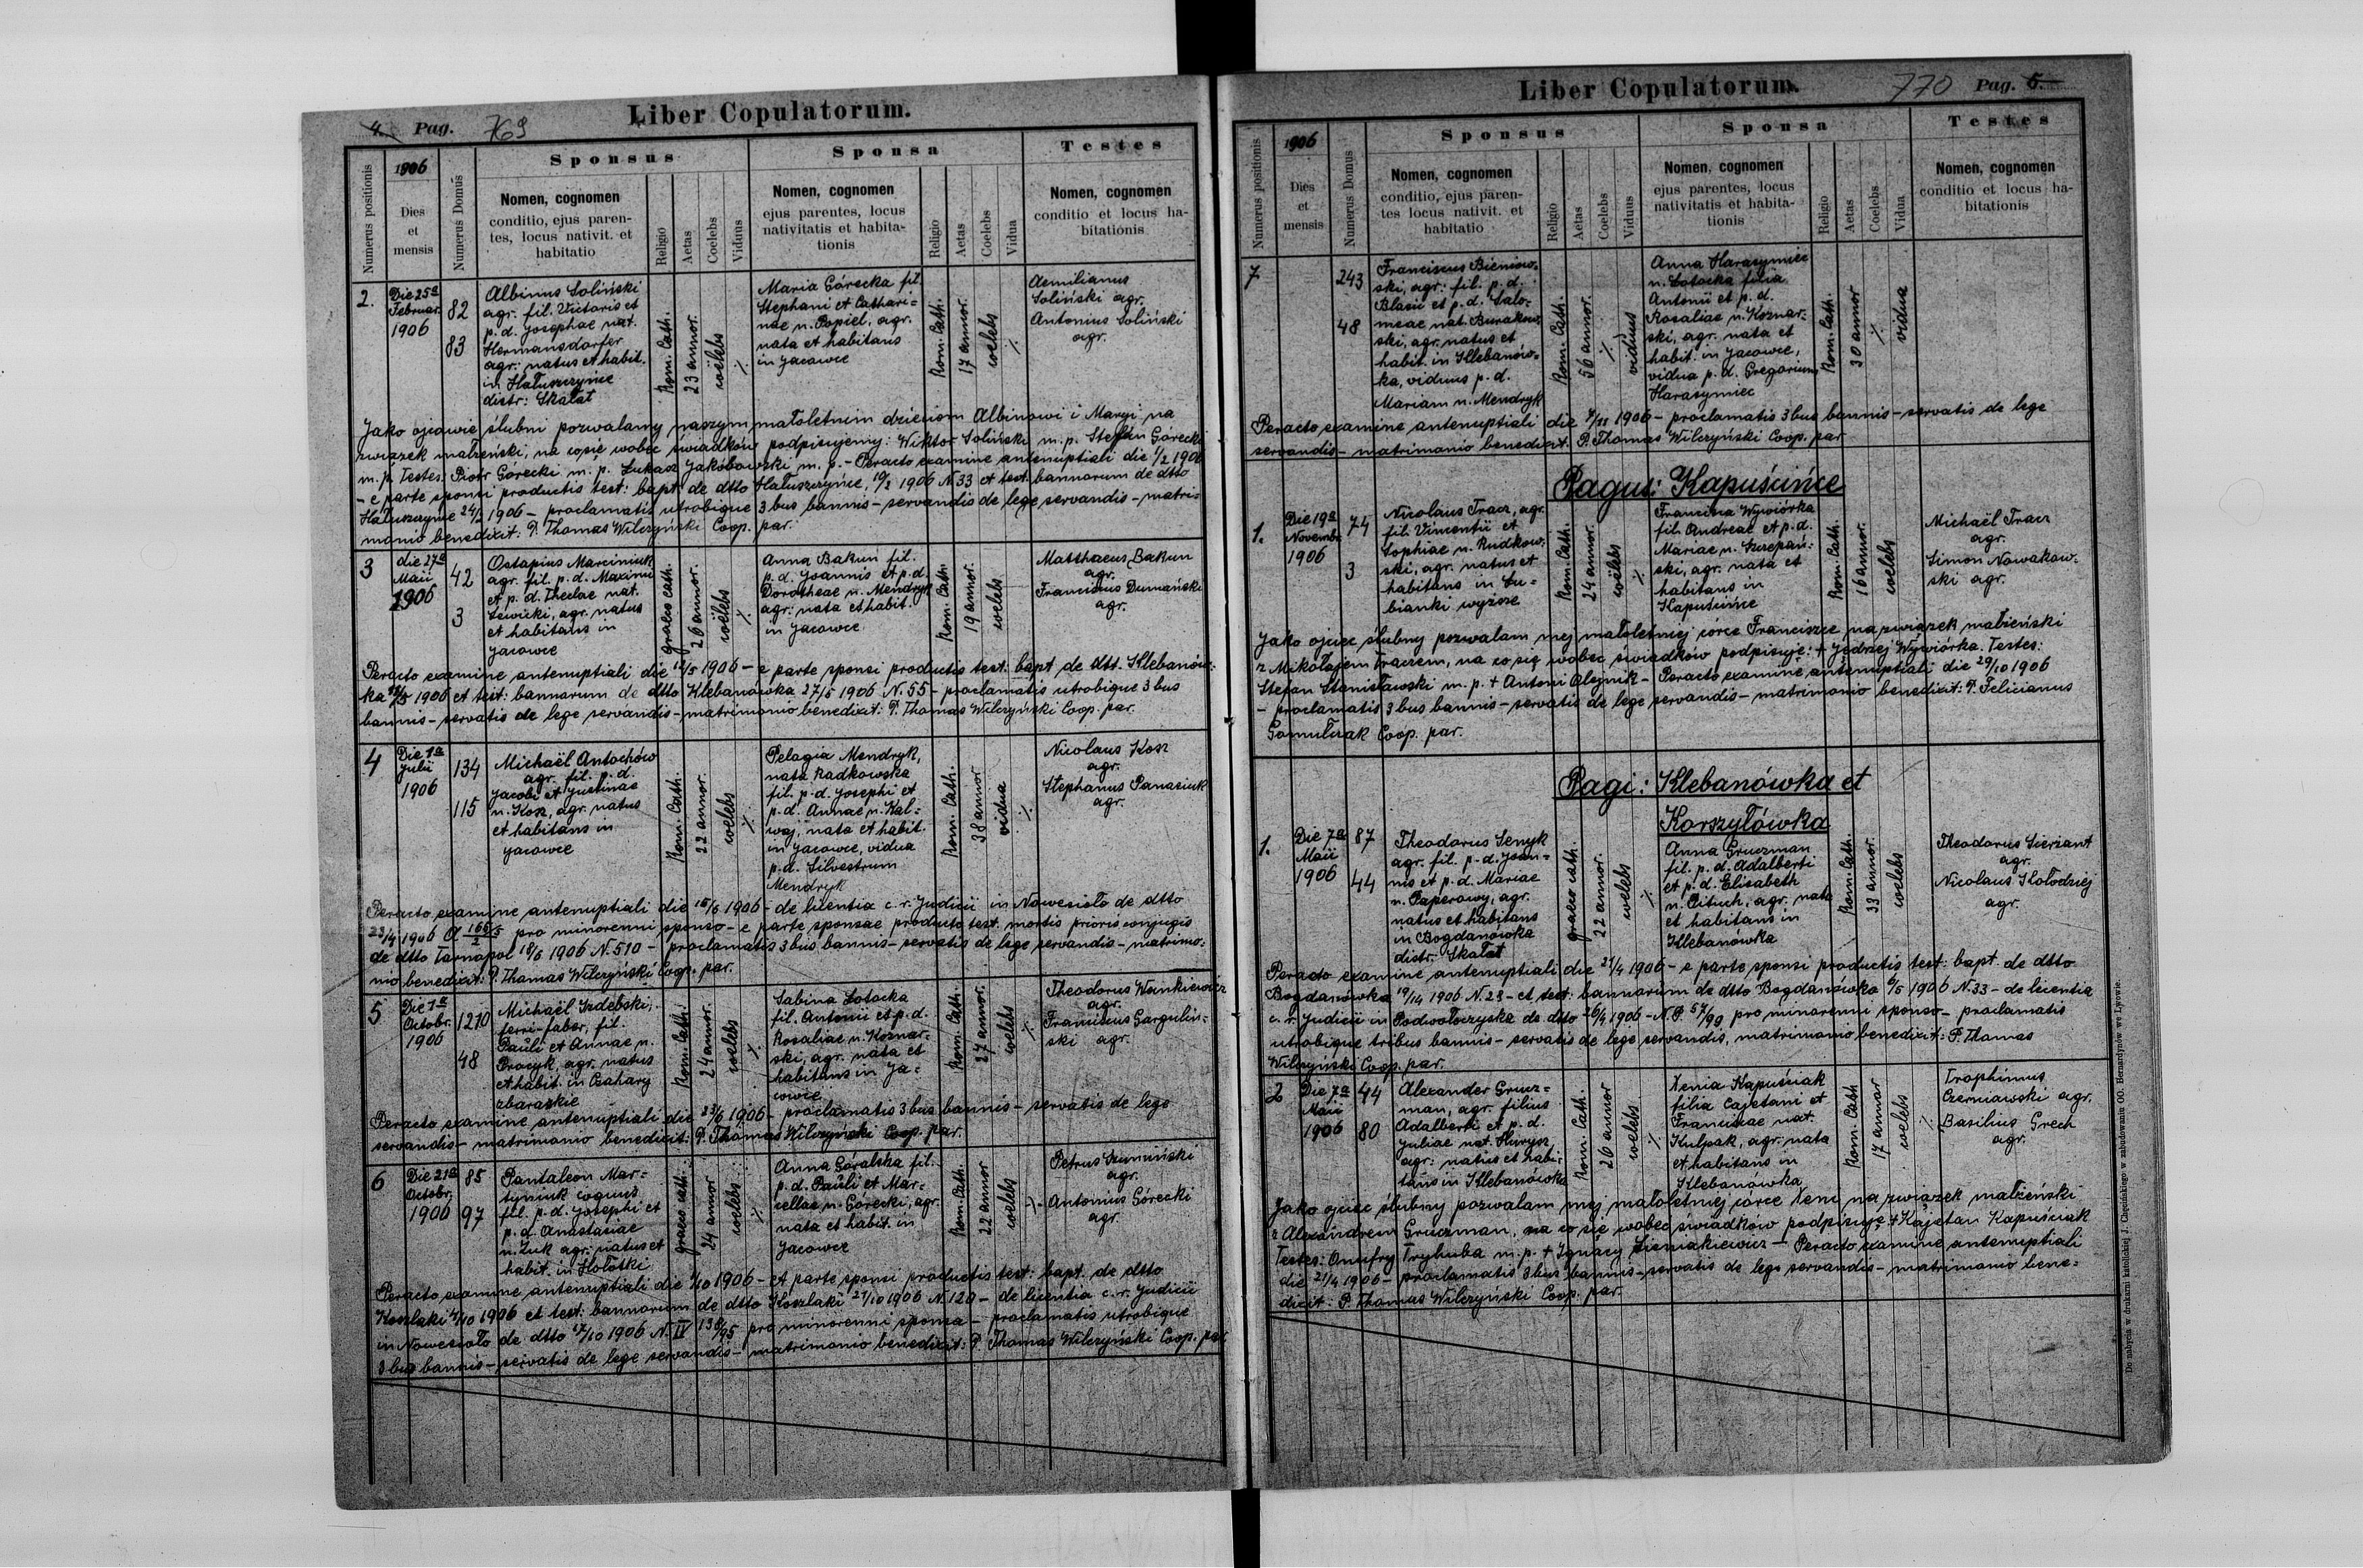 4. Pag. 769
Liber Copulatorum.
Numerus positionis
1906
Dies
et
mensis
Numerus Domus
Sponsus
Nomen, cognomen
conditio, ejus paren-
tes, locus nativit. et
habitatio
Religio
Aetas
Coelebs
Viduus
Sponsa
Nomen, cognomen
ejus parentes, locus
nativitatis et habita-
tionis
Religio
Aetas
Coelebs
Vidua
Testes
Nomen, cognomen
conditio et locus ha-
bitationis
2.
Die 25a
Februar.
1906
82
83
Albinus Soliński
agr. fil. Victoris et
p. d. Josephae nat.
Hermansdorfer
agr. natus et habit.
in Hałuszczyńce
distr: Skałat
Rom. Cath.
23 annor.
coelebs
Maria Górecka fil.
Stephani et Cathari=
nae n. Popiel, agr.
nata et habitans
in Jacowce
Rom. Cath.
17 annor.
coelebs
Aemilianus
Soliński agr.
Antonius Soliński
agr.
Jako ojcowie ślubni pozwalamy naszym małoletnim dzieciom Albinowi i Maryi na
związek małżeński, na co się wobec świadków podpisujemy: Wiktor Soliński m. p. Stefan Górecki
m. p. Testes: Piotr Górecki m. p. Łukasz Jakóbowski m. p. - Peracto examine antenuptiali die 1/2 1906
- e parte sponsi productis test: bapt. de dtto Hałuszczyńce, 19/2 1906 N. 33 et test. bannorum de dtto
Hałuszczyńce 24/2 1906 - proclamatis utrobique 3 bus bannis - servatis de lege servandis - matri=
monio benedixit: P. Thomas Wilczyński Coop. par.
3
die 27a
Maii
1906
42
3
Ostapius Marciniuk
agr. fil. p. d. Maximi
et p. d. Theclae nat.
Lewicki, agr. natus
et habitans in
Jacowce
graeco cath.
26 annor.
coelebs
Anna Bakun fil.
p. d. Joannis et p. d.
Dorotheae n. Mendryk
agr: nata et habit.
in Jacowce
Rom. Cath.
19 annor.
coelebs
Matthaeus Bakun
agr.
Franciscus Dumański
agr.
Peracto examine antenuptiali die 12/5 1906 - e parte sponsi productis test: bapt de dtt. Klebanów=
ka 1906 et test: bannorum de dtto Klebanówka 27/5 1906 N. 55 - proclamatis utrobique 3 bus
bannis - servatis de lege servandis - matrimonio benedixit: P. Thomas Wilczyński Coop. par.
4
Die 1a
Julii
1906
134
115
Michaël Antochów
agr. fil. p. d.
Jacobi et Justinae
n. Kosz, agr. natus
et habitans in
Jacowce
Rom. Cath.
22 annor.
coelebs
Pelagia Mendryk,
nata Radkowska
fil. p. d. Josephi et
p. d. Annae n. Kal=
waj, nata et habit.
in Jacowce, vidua
p. d. Silvestrum
Mendryk
Rom. Cath.
38 annor
vidua
Nicolaus Kosz
agr.
Stephanus Panasiuk
agr.
Peracto examine antenuptiali die 1906 - de licentia c. r. Judicii in Nowesioło de dtto
23/4 1906 pro minorenni sponso - e parte sponsae producto test. mortis prioris conjugis
de dtto Tarnopol 18/6 1906 N. 510 - proclamatis 3 bus bannis - servatis de lege servandis - matrimo=
nio benedixit: P. Thomas Wilczyński Coop. par.
5
Die 1a
Octobr.
1906
1210
48
Michaël Szdebski,
ferri-faber, fil.
Pauli et Annae n.
Procyk, agr. natus
et habit. in Czahary
zbaraskie
Rom. Cath.
24 annor.
coelebs
Sabina Łotocka
fil. Antonii et p. d.
Rosaliae n. Koznar=
ski, agr. nata et
habitans in Ja=
cowce
Rom. Cath.
27 annor.
coelebs
Theodorus Wańkiewicz
agr.
Franciscus Gargulin=
ski agr.
Peracto examine antenuptiali die 23/6 1906 - proclamatis 3 bus bannis - servatis de lege
servandis - matrimonio benedixit: P. Thomas Wilczyński Coop. par.
6
Die 21a
Octobr.
1906
85
97
Pantaleon Mar=
tyniuk coquus
fil. p. d. Josephi et
p. d. Anastasiae
n. Żuk agr. natus et
habit. in Hołotki
graeco cath.
24 annor
coelebs
Anna Góralska fil.
p. d. Pauli et Mar=
cellae n. Górecki, agr.
nata et habit. in
Jacowce
Rom. Cath.
22 annor
coelebs
Petrus Szumiński
agr.
Antonius Górecki
agr.
Peracto examine antenuptiali die 1/10 1906 - et parte sponsi productis test: bapt. de dtto
Koszlaki 1906 et test: bannorum de dtto Koszlaki 21/10 1906 N. 120 - de licentia c. r. Judicii
in Nowesioło de dtto 17/10 1906 N. IV pro minorenni sponsa - proclamatis utrobique
3 bus bannis - servatis de lege servandis - matrimonio benedixit: P. Thomas Wilczyński Coop. par.
Liber Copulatorum.
770 Pag. 5.
Numerus positionis
1906
Dies
et
mensis
Numerus Domus
Sponsus
Nomen, cognomen
conditio, ejus paren-
tes locus nativit. et
habitatio
Religio
Aetas
Coelebs
Viduus
Sponsa
Nomen, cognomen
ejus parentes, locus
nativitatis et habita-
tionis
Religio
Aetas
Coelebs
Vidua
Testes
Nomen, cognomen
conditio et locus ha-
bitationis
7
243
48
Franciscus Bieniow=
ski, agr: fil. p. d.
Blasii et p. d. Salo=
meae nat. Burakow=
ski, agr. natus et
habit. in Klebanów=
ka, viduus p. d.
Mariam n. Mendryk
Rom. Cath.
56 annor.
viduus
Anna Harasymiec
n. Łotocka filia
Antonii et p. d.
Rosaliae n. Koznar=
ski, agr. nata et
habit. in Jacowce,
vidua p. d. Gregorium
Harasymiec
Rom. Cath.
30 annor
vidua
Peracto examine antenuptiali die 1906 - proclamatis 3 bus bannis - servatis de lege
servandis - matrimonio benedixit: P. Thomas Wilczyński Coop. par
Pagus: Kapuścińce
1.
Die 19a
Novembr.
1906
74
3
Nicolaus Tracz, agr.
fil. Vincentii et
Sophiae n. Rudkow=
ski, agr. natus et
habitans in Łu=
bianki wyższe
Rom. Cath.
24 annor.
coelebs
Francisca Wywiórka
fil. Andreae et p. d.
Mariae n. Szczepań=
ski, agr. nata et
habitans in
Kapuścińce
Rom. Cath.
16 annor.
coelebs
Michaël Tracz
agr.
Simon Nowakow=
ski agr.
Jako ojciec ślubny pozwalam mej małoletniej córce Franciszce na związek małżeński
z Mikołajem Traczem, na co się wobec świadków podpisuję: + Jędrzej Wywiórka. Testes:
Stefan Stanisławski m. p. + Antoni Olejnik - Peracto examine antenuptiali die 29/10 1906
- proclamatis 3 bus bannis - servatis de lege servandis - matrimonio benedixit: P. Felicianus
Gomułczak Coop. par.
Pagi: Klebanówka et
Korszyłówka
1.
Die 7a
Maii
1906
87
44
Theodorus Senyk
agr. fil. p. d. Joan=
nis et p. d. Mariae
n. Paperowy, agr.
natus et habitans
in Bogdanówka
distr. Skałat
graeco cath.
22 annor.
coelebs
Anna Gruczman
fil. p. d. Adalberti
et p. d. Elisabeth
n. Pituch, agr. nata
et habitans in
Klebanówka
Rom. Cath.
33 annor.
coelebs
Theodorus Sierżant
agr.
Nicolaus Kołodziej
agr.
Peracto examine antenuptiali die 21/4 1906 - e parte sponsi productis test: bapt. de dtto
Bogdanówka 19/4 1906 N. 23 - et test: bannorum de dtto Bogdanówka 6/5 1906 N. 33 - de licentia
c. r. Judicii in Podwołoczyska de dtto 26/4 1906 - N. P. 57/99 pro minorenni sponso - proclamatis
utrobique tribus bannis - servatis de lege servandis, matrimonio benedixit: P. Thomas
Wilczyński Coop. par.
2
Die 7a
Maii
1906
44
80
Alexander Grucz=
man, agr. filius
Adalberti et p. d.
Juliae nat. Hurysz,
agr: natus et habi=
tans in Klebanówka
Rom. Cath.
26 annor
coelebs
Xenia Kapuściak
filia Cajetani et
Franciscae nat.
Kulpak, agr. nata
et habitans in
Klebanówka
Rom. Cath
17 annor
coelebs
Trophimus
Czerniawski agr.
Basilius Grech
agr.
Jako ojciec ślubny pozwalam mej małoletniej córce Xeni na związek małżeński
z Alexandrem Gruczman, na co się wobec świadków podpisuję + Kajetan Kapuściak
Testes: Onufry Tryhuba m. p. + Ignacy Ziemiakiewicz - Peracto examine antenuptiali
die 21/4 1906 - proclamatis 3 bus bannis - servatis de lege servandis - matrimonio bene=
dixit: P. Thomas Wilczyński Coop. par.
Do nabycia w drukarni katolickiej J. Chęcińskiego w zabudowaniu OO. Bernardynów we Lwowie.